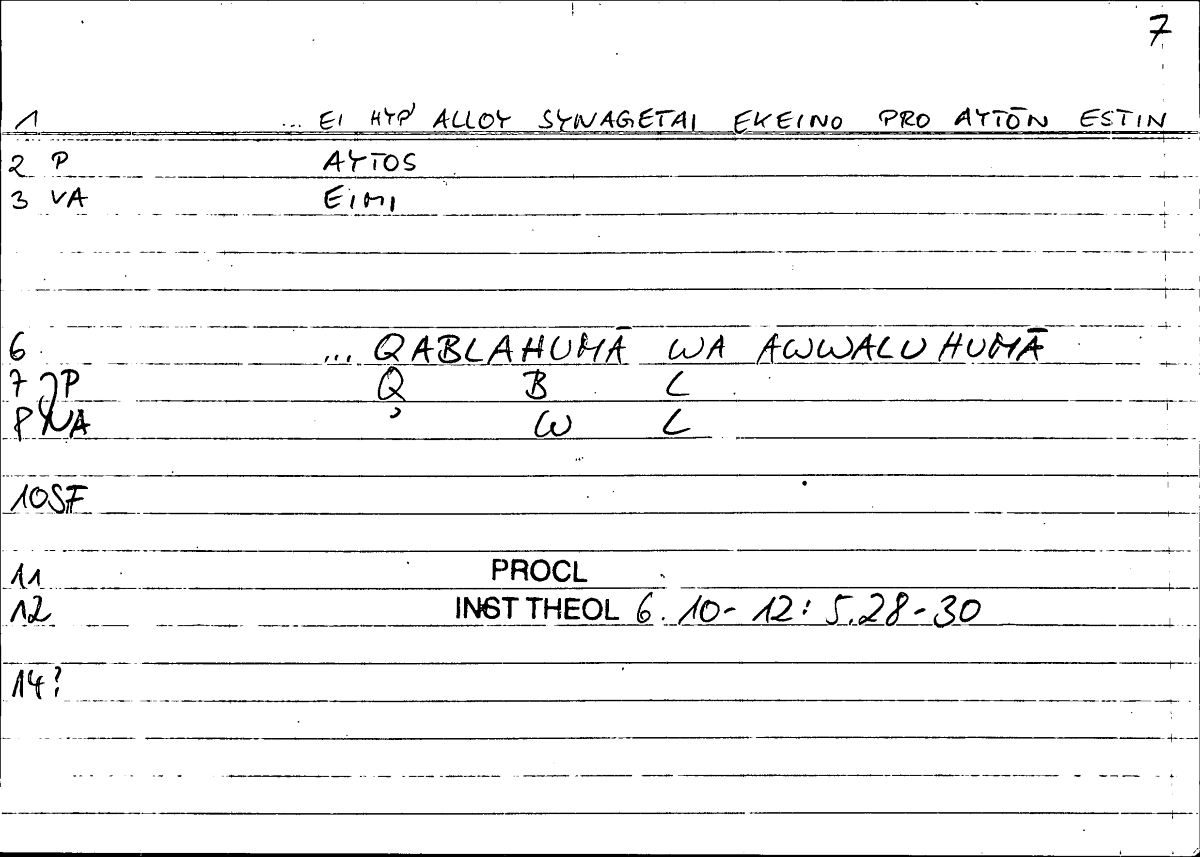 7
1 ... EI HYP' ALLOY SYNAGETAI EKEINO PRO AYTŌN ESTIN
2 P AYTOS
3 VA EIMI
6 ... QABLAHUMĀ WA AWWALUHUMĀ
7 P Q B L
8 VA ʾ W L
10 SF
11 PROCL
12 INST THEOL 6. 10-12: 5.28-30
14?